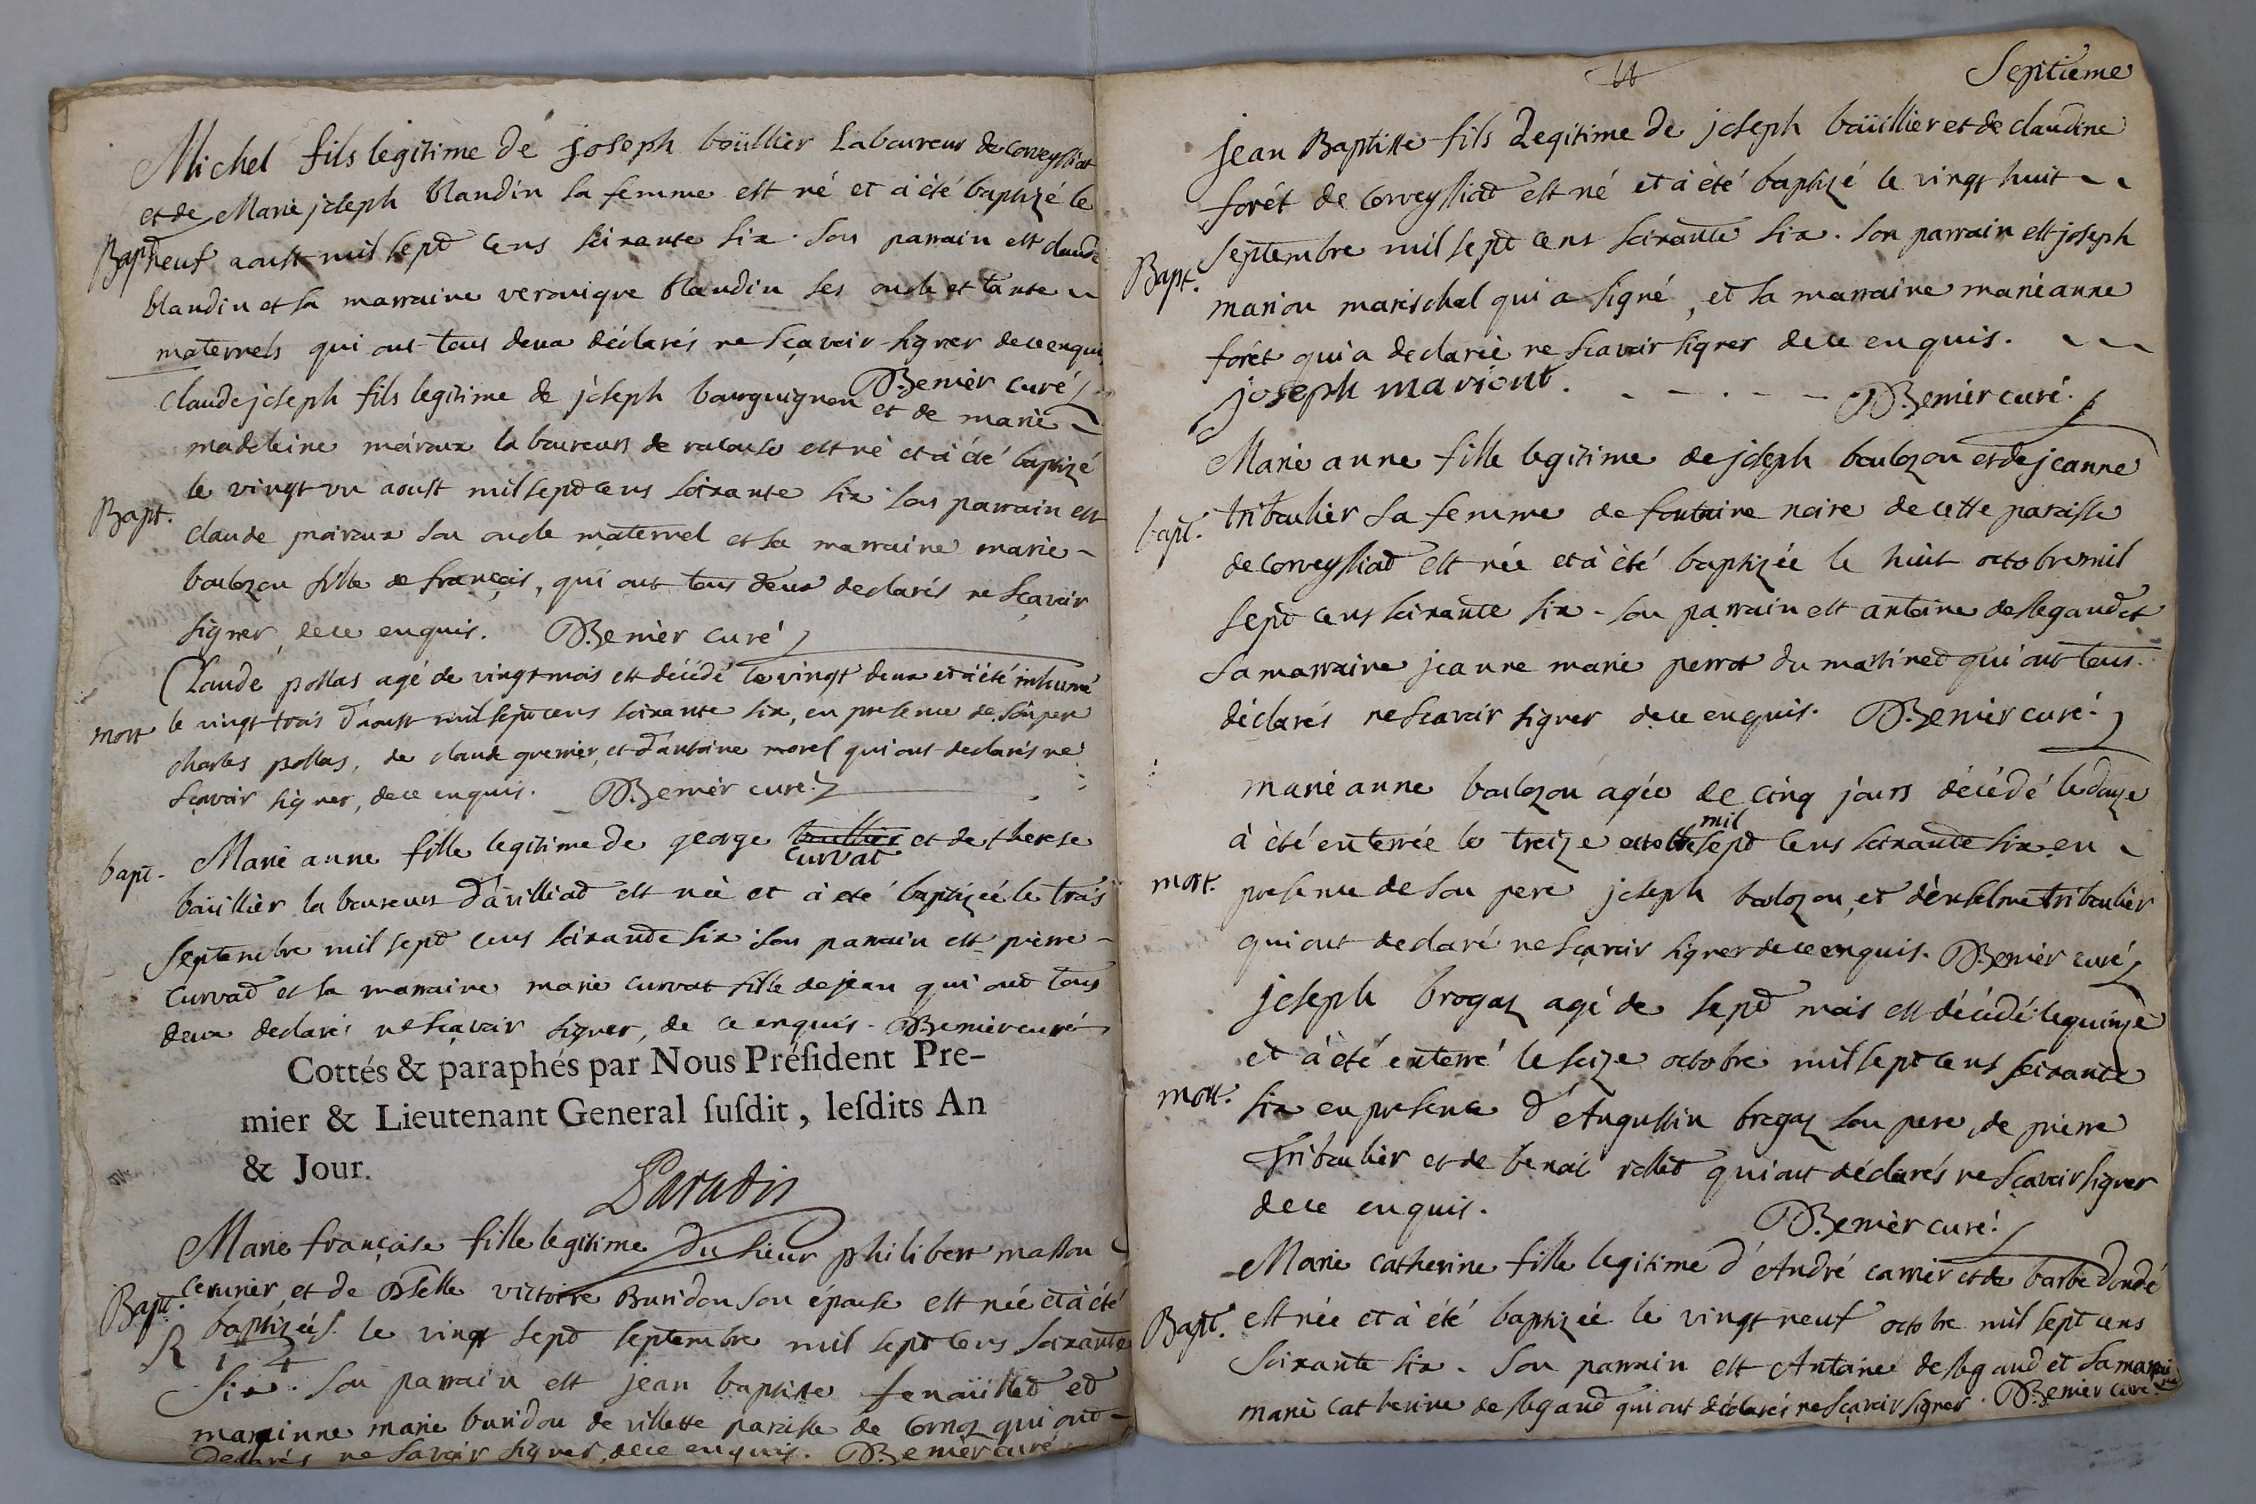 Michel fils legitime de joseph boüillier Laboureur de corveyssiat
et de Marie joseph blandin sa femme est né et à été baptizé le
Bapt. neuf aoust mil sept cens soixante six. son parrain est claude
blandin et sa marraine veronique blandin ses oncle et tante
maternels qui ont tous deux déclarés ne sçavoir signer de ce enquis
Bemier curé
claude joseph fils legitime de joseph bourguignon et de marie
madeleine moiraux laboureurs de ralouse est né et à été baptizé
le vingt un aoust mil sept cens soixante six son parrain est
Bapt.
claude moiraux son oncle maternel et sa marraine marie
boulozon fille de françois, qui ont tous deux declarés ne sçavoir
signer, de ce enquis. Bemier curé
Claude pollas agé de vingt mois est décédé le vingt deux et à été inhumé
mort le vingt trois d'aoust mil sept cens soixante six, en presence de son pere
charles pollas, de claude grenier, et d'antoine morel qui ont declarés ne
sçavoir signer, de ce enquis. Bemier curé
bapt. Marie anne fille legitime de george curvat et de therese
boüillier laboureurs d'avilliad est née et à été baptizée le trois
septembre mil sept cens soixante six son parrain est pierre
curvad et sa marraine marie curvat fille de jean qui ont tous
deux declarés ne sçavoir signer, de ce enquis. Bemier curé
Cottés & paraphés par Nous Préſident Pre-
mier & Lieutenant General ſuſdit, leſdits An
& Jour.
Paradis
Marie françoise fille legitime du sieur philibert masson
Bapt. et de Dselle victoire Buridon son épouse est née et à été
baptizées. le vingt sept septembre mil sept cens soixante
R 1 4
six. son parrain est jean baptiste fenoüillet et
marainne marie buridon de villette paroisse de Cornoz qui ont
declarés ne savoir signer, de ce enquis. Bemier curé
Septieme
jean Baptiste fils Legitime de joseph boüillier et de claudine
forêt de Corveyssiad est né et à été baptizé le vingt huit
septembre mil sept cens soixante six. son parrain est joseph
Bapt.
mariou marischal qui a signé, et sa marraine marie anne
forêt qui a declarée ne scavoir signer de ce enquis.
joseph mariout. Bemier curé.
Marie anne fille legitime de joseph boulozon et de jeanne
bapt. triboulier sa femme de fontaine noire de cette paroisse
de Corveyssiad est née et à été baptizée le huit octobre mil
sept cens soixante six. son parrain est antoine desbegaud et
sa marraine jeanne marie perrot du martined qui ont tous.
déclarés ne scavoir signer de ce enquis. Bemier curé.
marie anne boulozon agée de cinq jours décédé le douze
à été enterrée le treize octobre mil sept cens soixante six en
mort. presence de son pere joseph boulozon, et d'enselme triboulier
qui ont declaré ne sçavoir signer de ce enquis. Bemier curé
joseph brogaz agé de sept mois est décédé le quinze
et à été enterré le seize octobre mil sept cens soixante
mort. six en presence d'Augustin brogaz son pere, de pierre
Triboulier et de benoit rollet qui ont déclarés ne sçavoir signer
de ce enquis. Bemier curé.
Marie catherine fille legitime d'André carrier et de barbe dondé
Bapt. est née et à été baptizée le vingt neuf octobre mil sept cens
soixante six. son parrain est Antoine desbegaud et sa marraine
marie catherine desbegaud qui ont déclarés ne sçavoir signer. Bemier curé